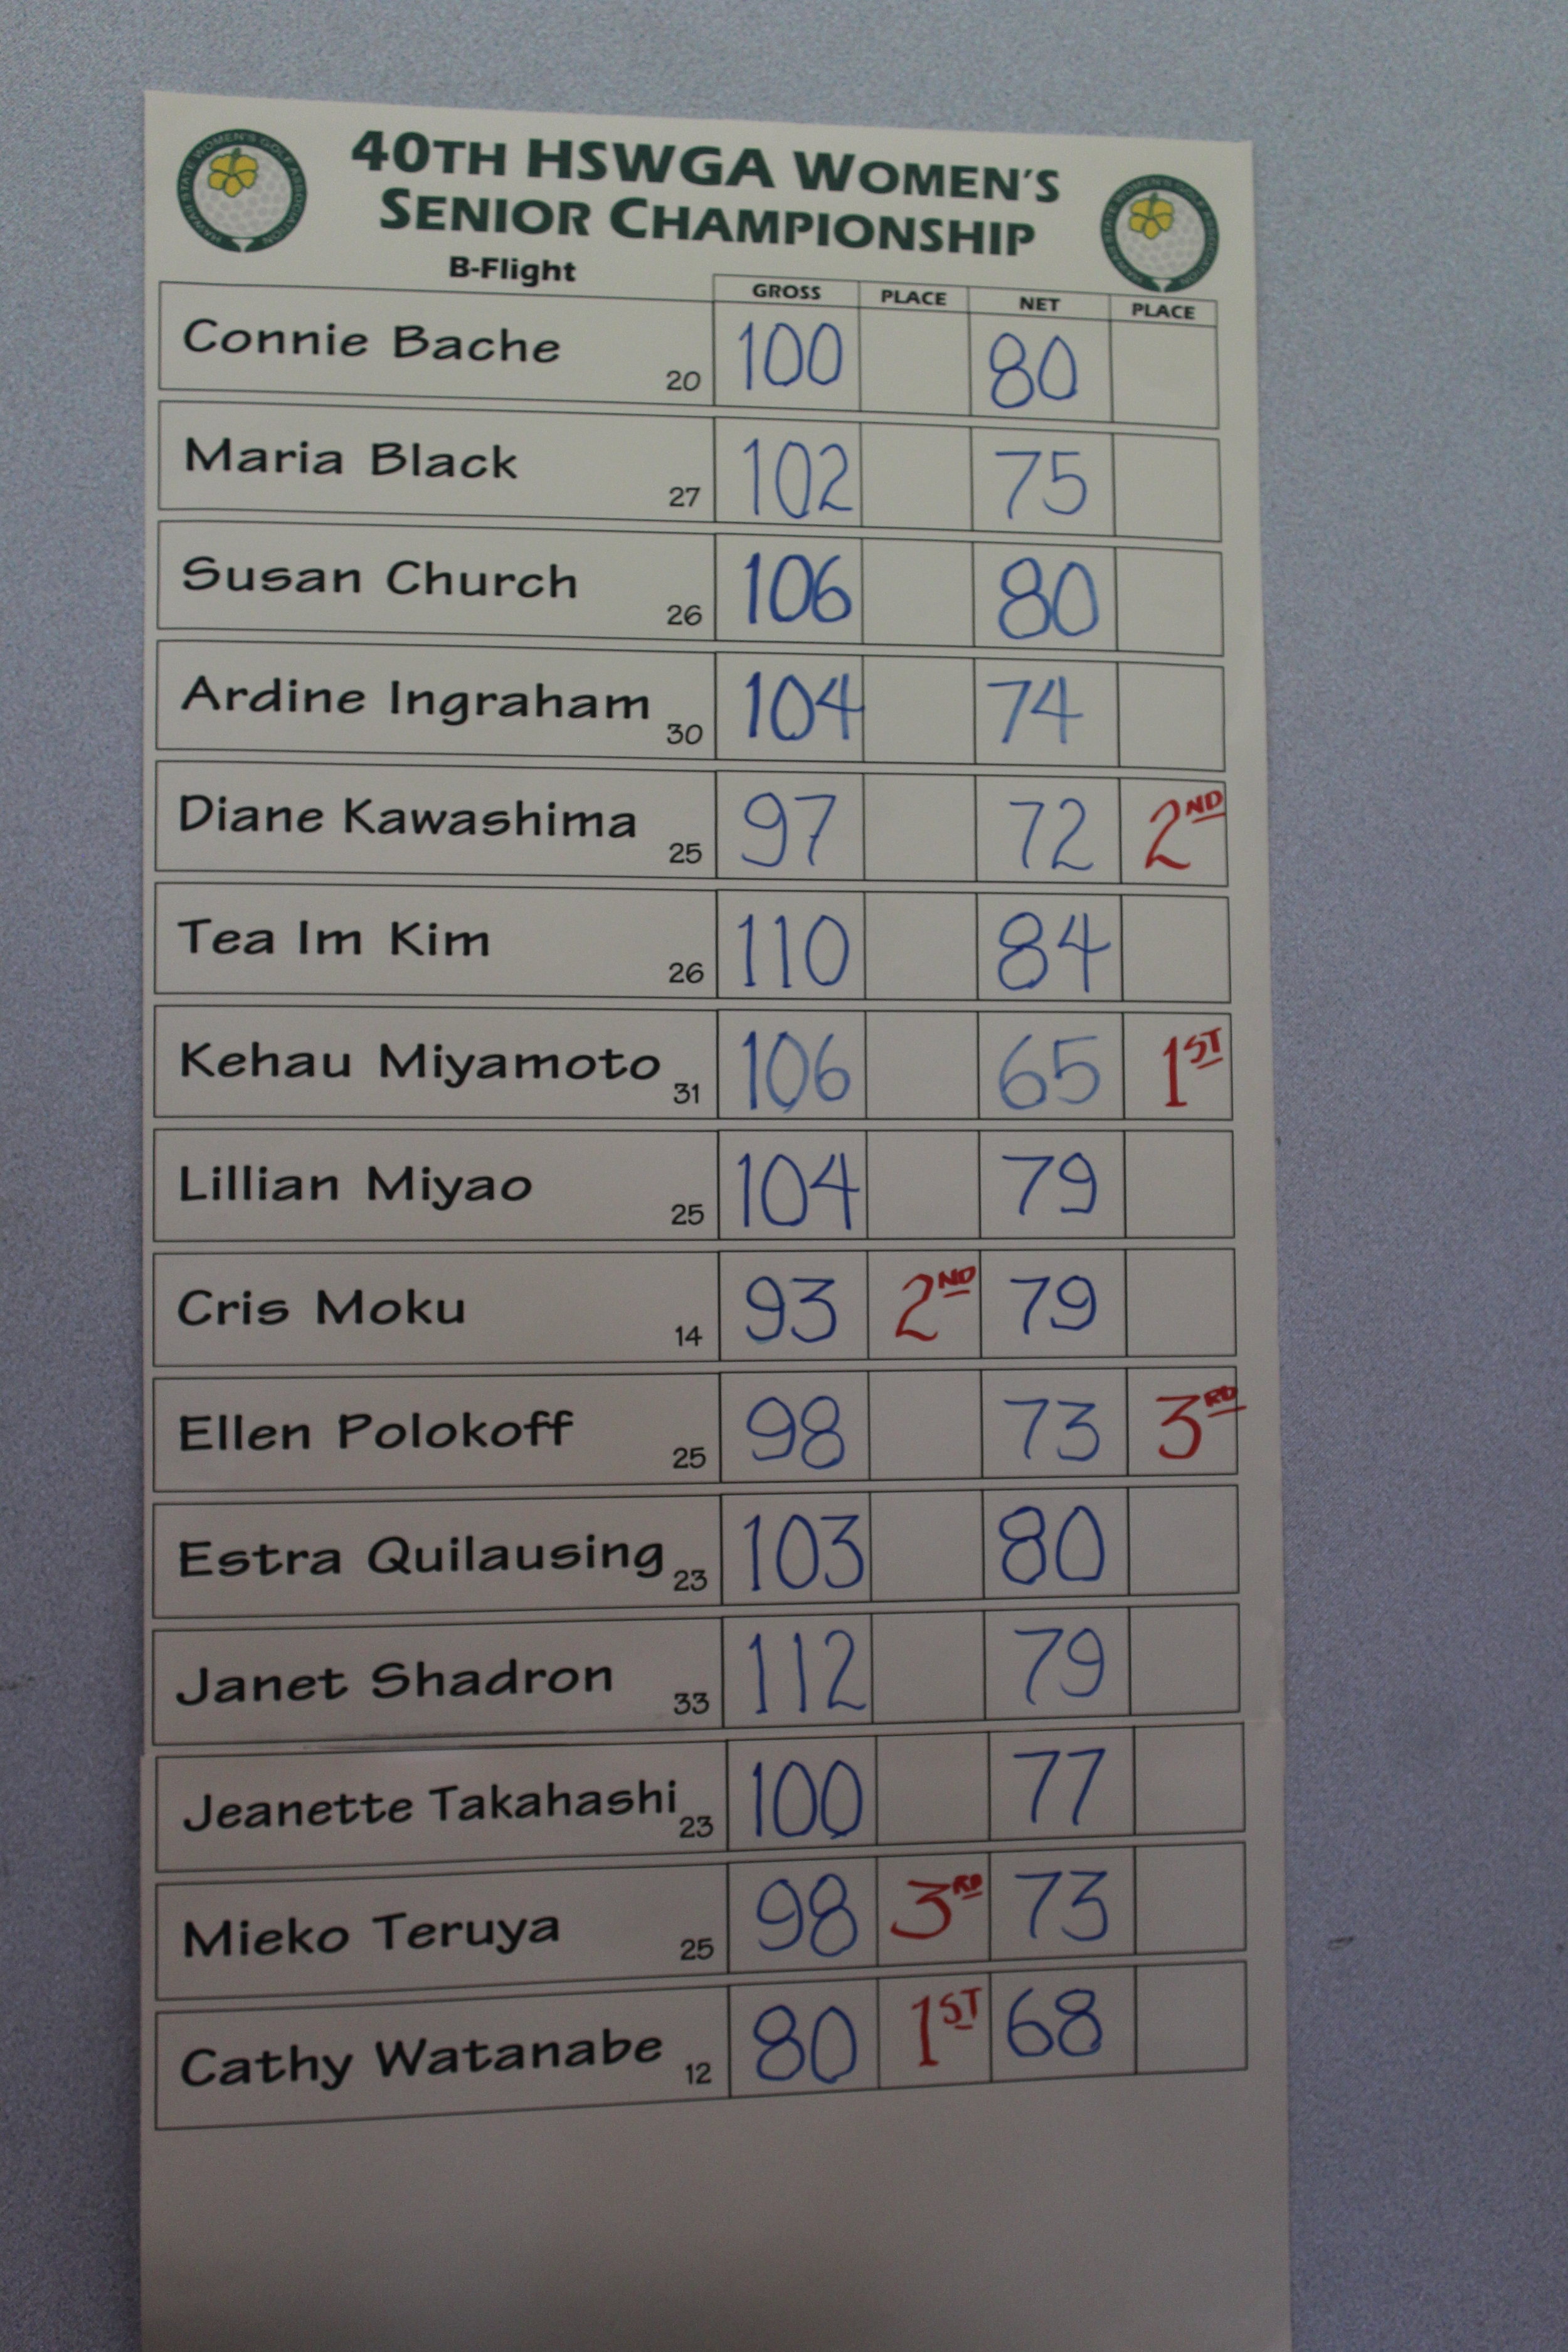 40TH HSWGA WOMEN'S
SENIOR CHAMPIONSHIP
HAWAII STATE WOMEN'S GOLF ASSOCIATION
HAWAII STATE WOMEN'S GOLF ASSOCIATION
B-Flight
GROSS PLACE NET PLACE
Connie Bache 20 100 80
Maria Black 27 102 75
Susan Church 26 106 80
Ardine Ingraham 30 104 74
Diane Kawashima 25 97 72 2ND
Tea Im Kim 26 110 84
Kehau Miyamoto 31 106 65 1ST
Lillian Miyao 25 104 79
Cris Moku 14 93 2ND 79
Ellen Polokoff 25 98 73 3RD
Estra Quilausing 23 103 80
Janet Shadron 33 112 79
Jeanette Takahashi 23 100 77
Mieko Teruya 25 98 3RD 73
Cathy Watanabe 12 80 1ST 68